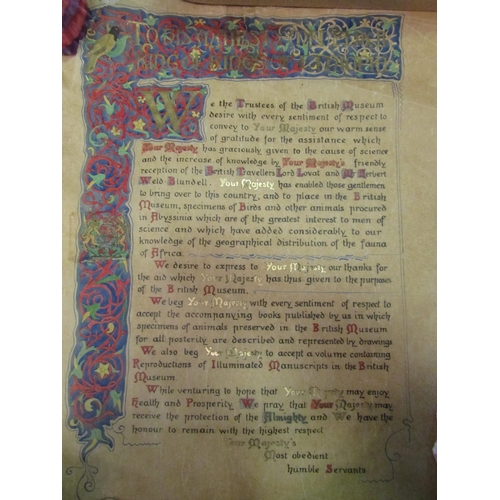 TO HIS
KING OF KINGS OF
We the Trustees of the British Museum
desire with every sentiment of respect to
convey to Your Majesty our warm sense
of gratitude for the assistance which
Your Majesty has graciously given to the cause of science
and the increase of knowledge by Your Majesty's friendly
reception of the British Travellers Lord Lovat and Mr Herbert
Weld Blundell. Your Majesty has enabled those gentlemen
to bring over to this country, and to place in the British
Museum, specimens of Birds and other animals procured
in Abyssinia which are of the greatest interest to men of
science and which have added considerably to our
knowledge of the geographical distribution of the fauna
of Africa.
We desire to express to Your Majesty our thanks for
the aid which Your Majesty has thus given to the purposes
of the British Museum.
We beg Your Majesty with every sentiment of respect to
accept the accompanying books published by us in which
specimens of animals preserved in the British Museum
for all posterity are described and represented by drawings
We also beg Your Majesty to accept a volume containing
Reproductions of Illuminated Manuscripts in the British
Museum.
While venturing to hope that Your Majesty may enjoy
Health and Prosperity We pray that Your Majesty may
receive the protection of the Almighty and We have the
honour to remain with the highest respect
Your Majesty's
Most obedient
humble Servants